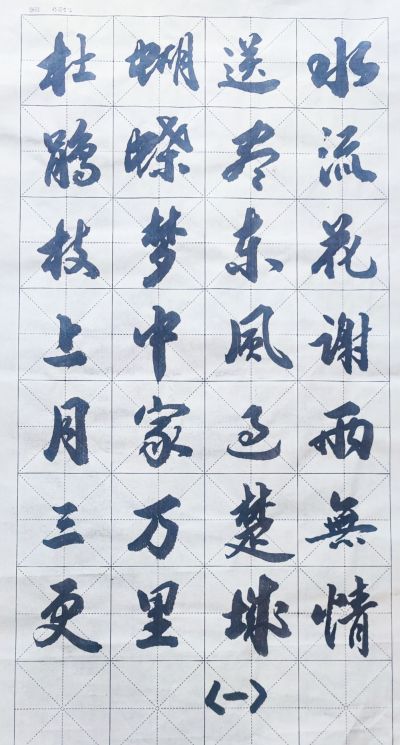 水流花谢两無情
送尽东風过楚城
蝴蝶梦中家万里
杜鵑枝上月三更
<一>